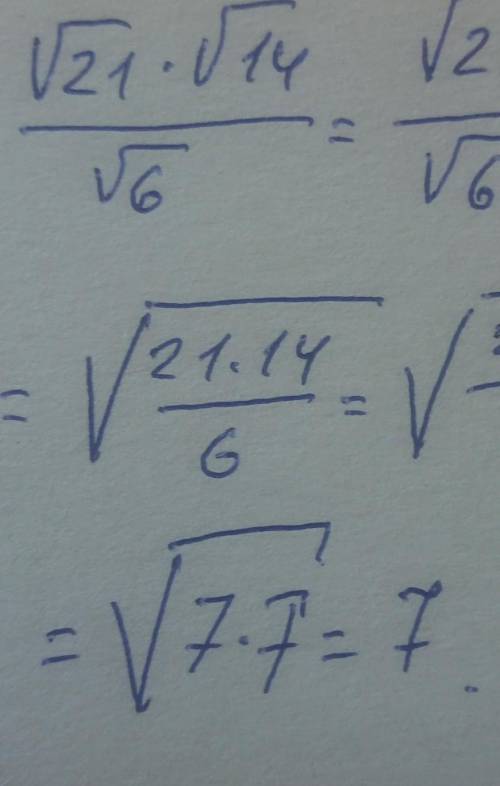 √21 · √14 / √6 = √2 / √6
= √(21·14 / 6) = √
= √(7·7) = 7